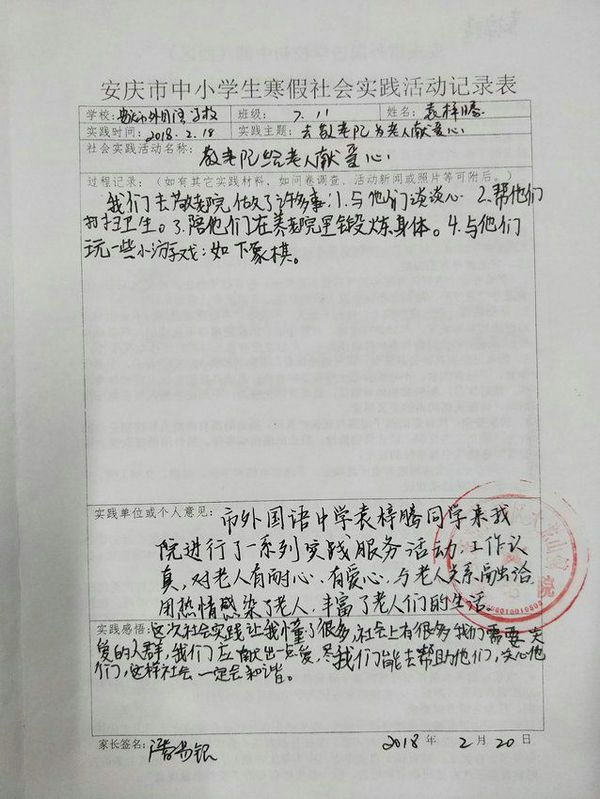 安庆市中小学生寒假社会实践活动记录表
学校: 安庆市外国语学校 班级: 7.11 姓名: 袁梓腾
实践时间: 2018.2.18 实践主题: 去敬老院为老人献爱心
社会实践活动名称: 敬老院给老人献爱心
过程记录:(如有其它实践材料,如问卷调查、活动新闻或照片等可附后。)
我们去敬老院,做了许多事:1.与他们谈谈心 2.帮他们
打扫卫生。3.陪他们在养老院里锻炼身体。4.与他们
玩一些小游戏:如下象棋。
实践单位或个人意见: 市外国语中学袁梓腾同学来我
院进行了一系列实践服务活动,工作认
真,对老人有耐心、有爱心,与老人关系融洽
用热情感染了老人,丰富了老人们的生活。
实践感悟:这次社会实践让我懂了很多,社会上有很多我们需要关
爱的人群,我们应献出一点爱,尽我们能去帮助他们,关心他
们,这样社会一定会和谐。
家长签名: 2018 年 2 月 20 日